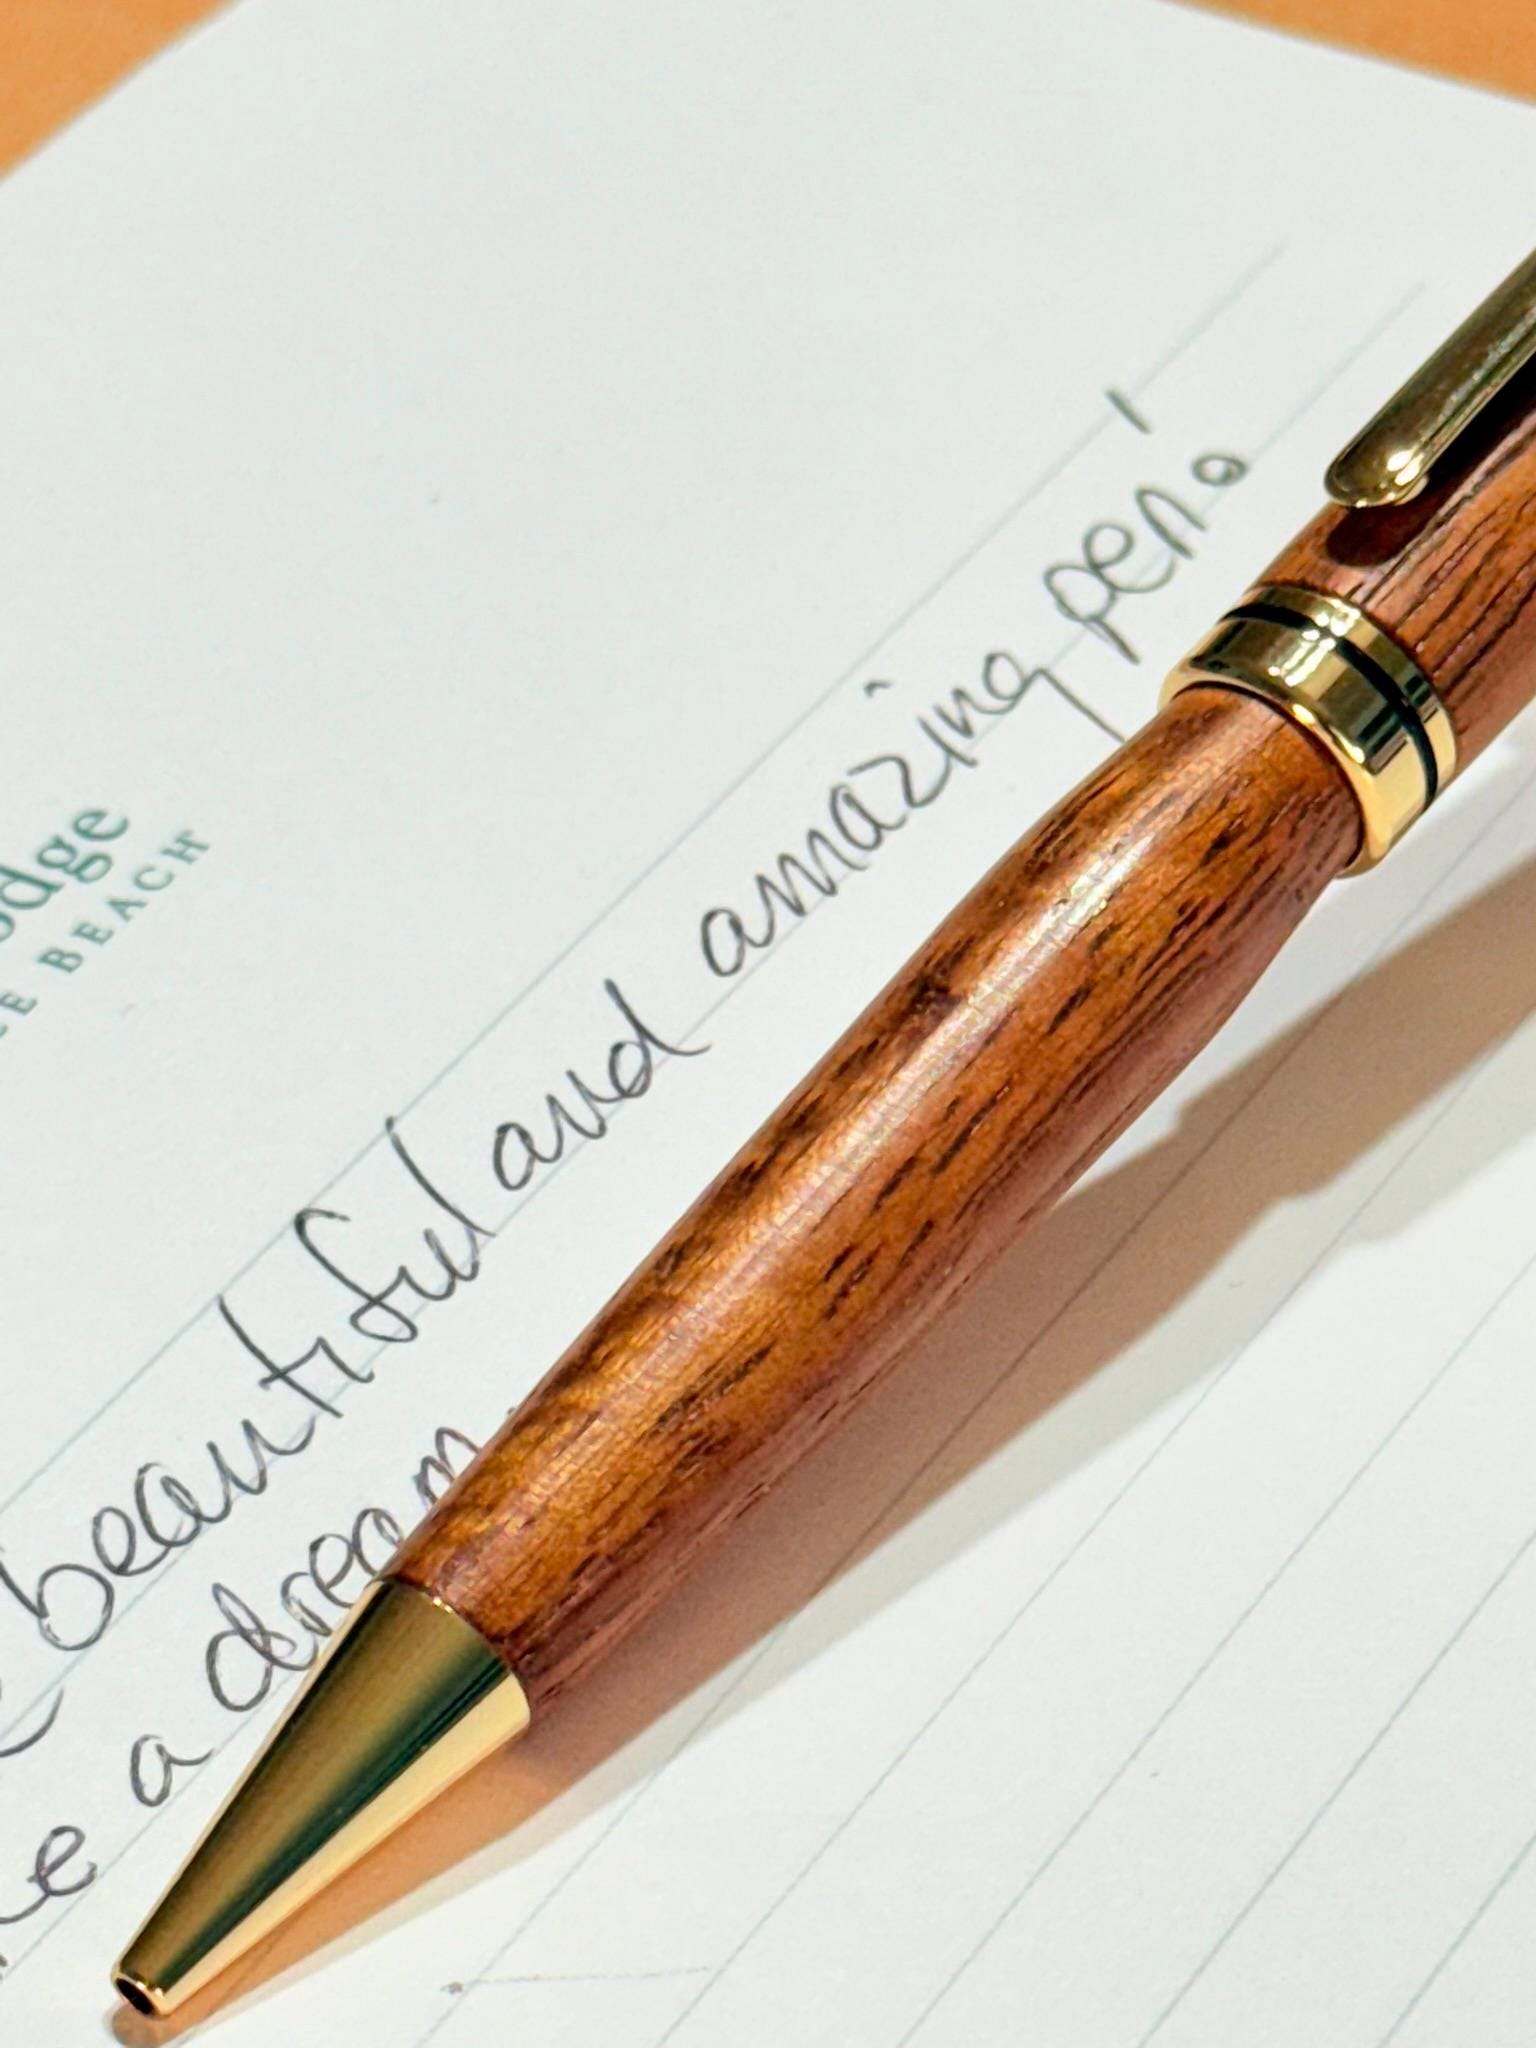 odge
E BEACH
beautiful and amazing pen!
a dream